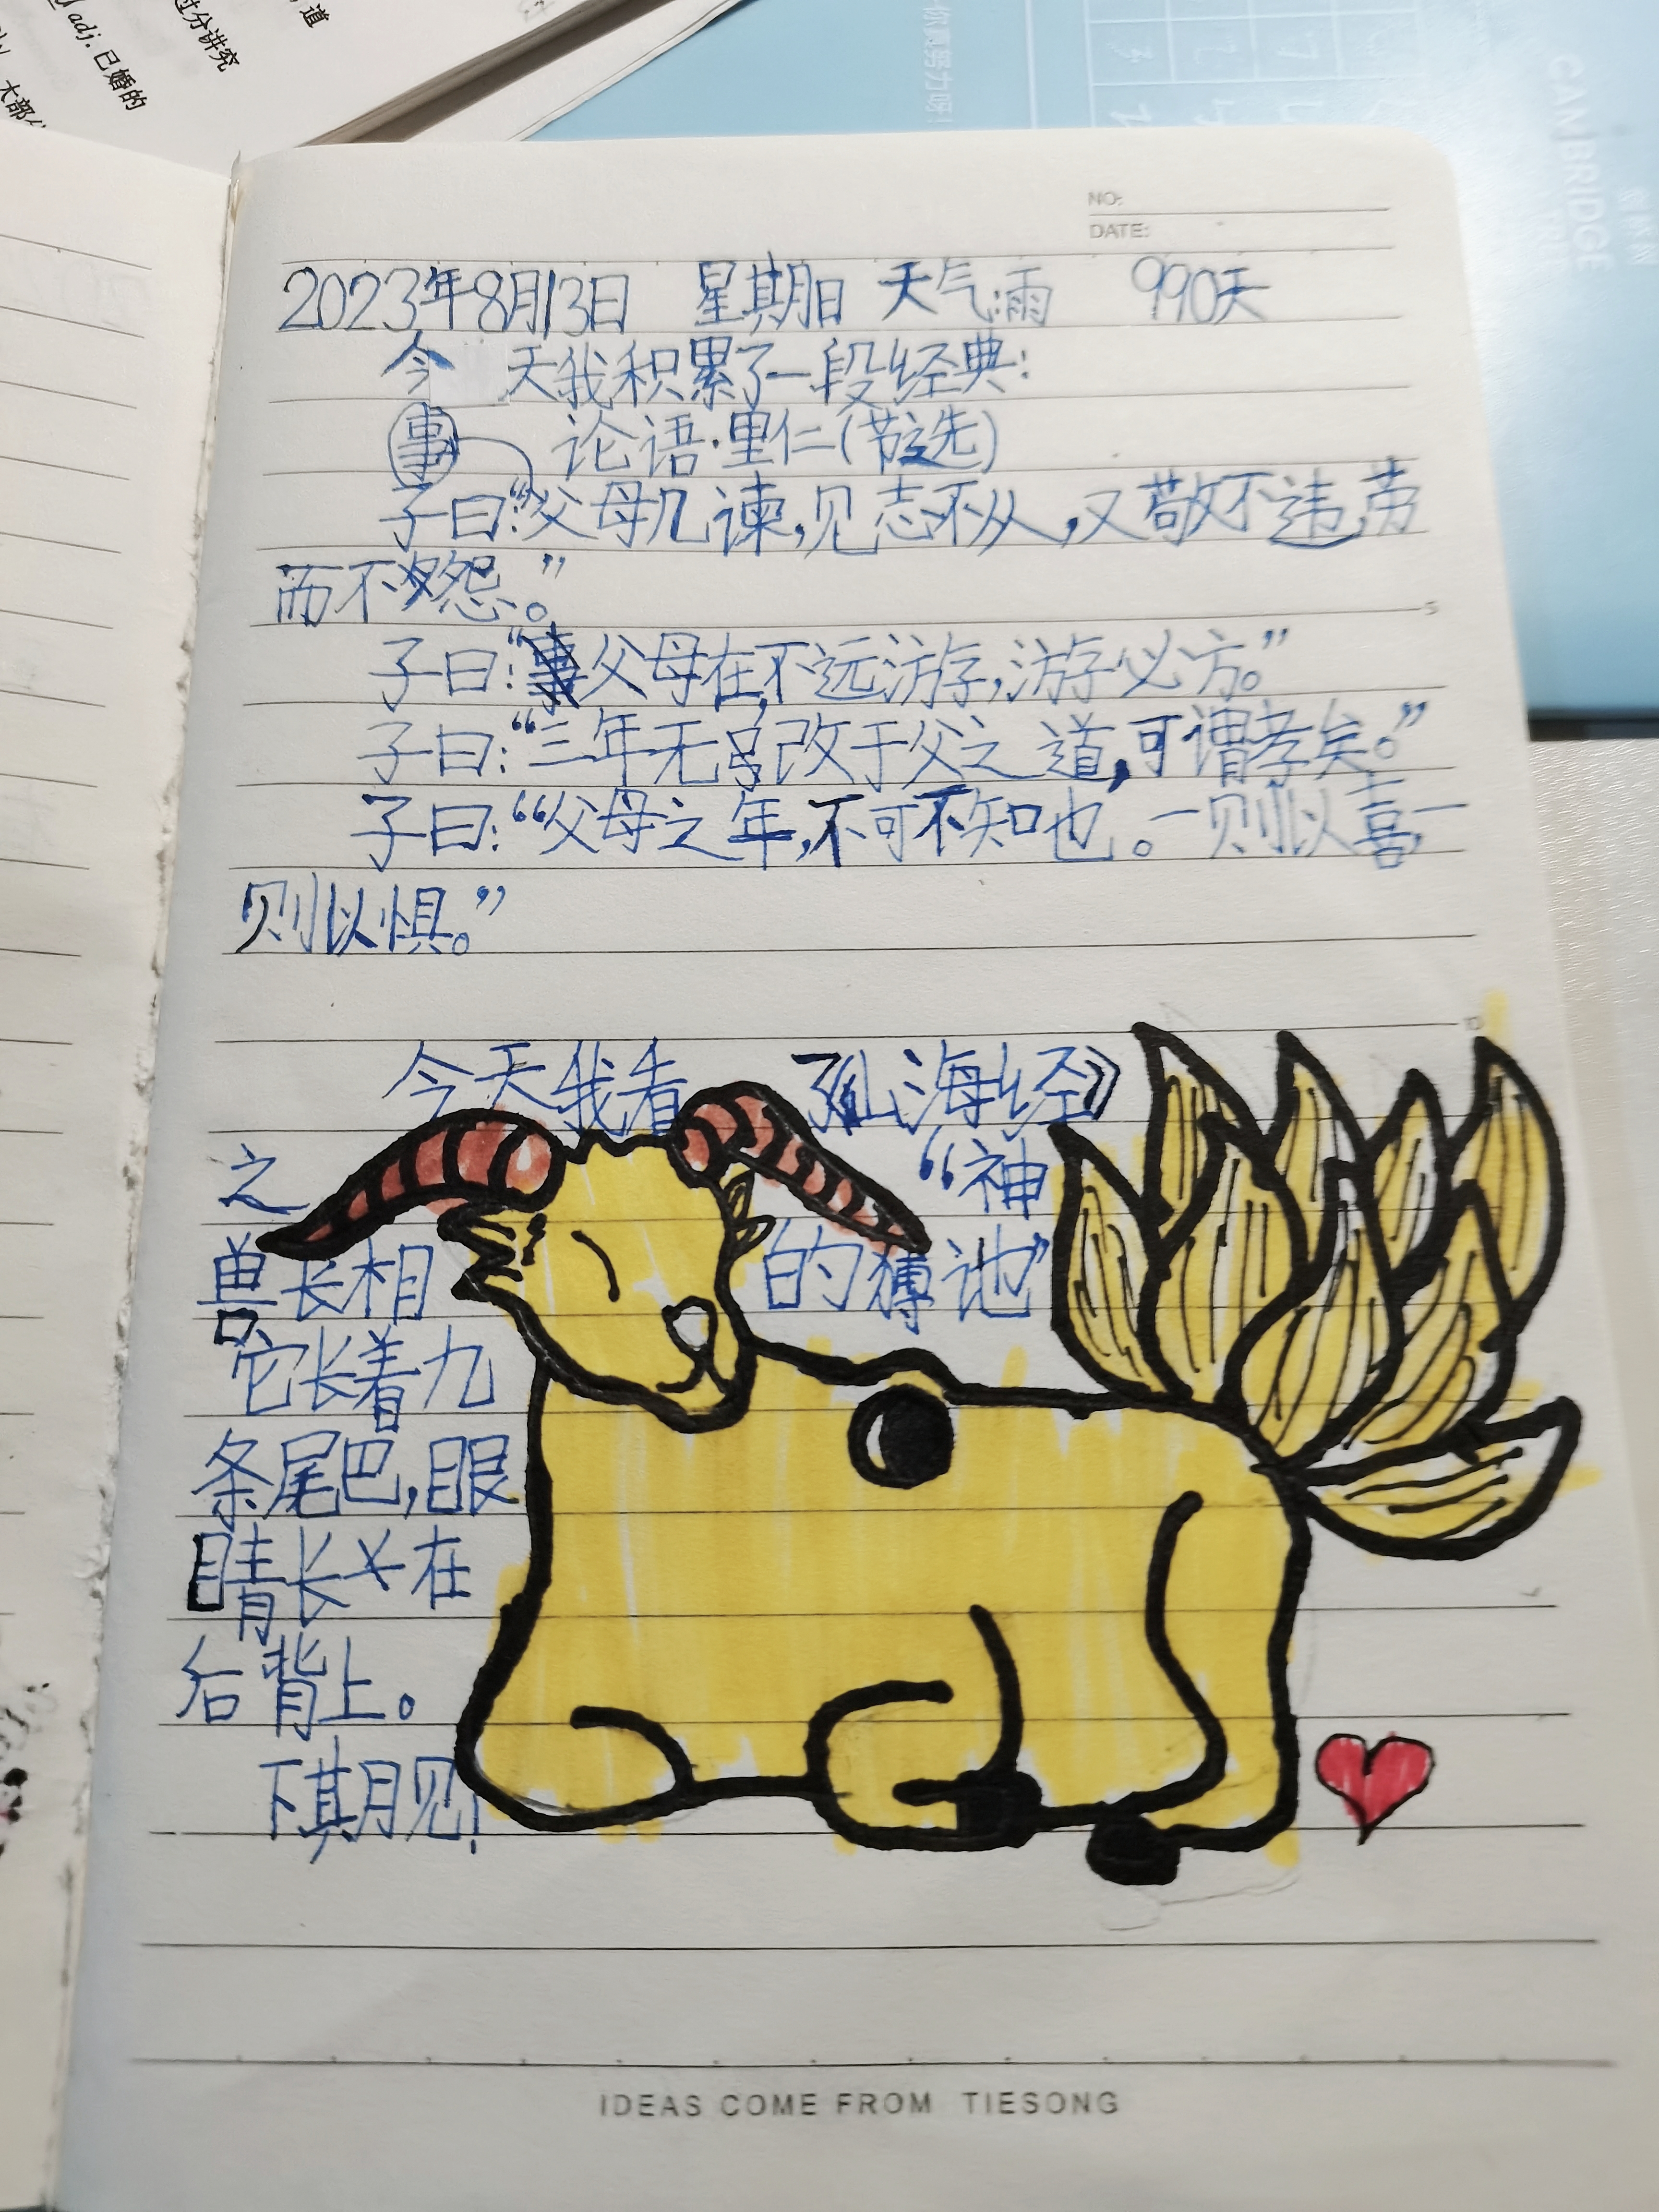 道
过分讲究
adj. 已婚的
大部分
CAMBRIDGE
NO:
DATE:
2023年8月13日 星期日 天气:雨 990天
今天我积累了一段经典:
事 论语·里仁(节选)
子曰:“父母几谏,见志不从,又敬不违,劳
而不怨。”
子曰:“父母在,不远游,游必方。”
子曰:“三年无改于父之道,可谓孝矣。”
子曰:“父母之年,不可不知也。一则以喜,一
则以惧。”
5
10
今天我看 山海经》
之 “神
兽长相 的猼訑”
它长着九
条尾巴,眼
睛长在
后背上。
下期见!
IDEAS COME FROM TIESONG